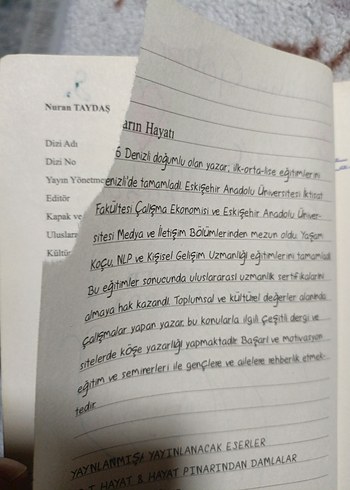 Nuran TAYDAŞ
Dizi Adı
Dizi No
Yayın Yönetme
Editör
Kapak ve
Uluslar
Kültür
arın Hayatı
6 Denizli doğumlu olan yazar, ilk-orta-lise eğitimlerini
enizli'de tamamladı. Eskişehir Anadolu Üniversitesi İktisat
Fakültesi Çalışma Ekonomisi ve Eskişehir Anadolu Üniver-
sitesi Medya ve İletişim Bölümlerinden mezun oldu. Yaşam
Koçu, NLP ve Kişisel Gelişim Uzmanlığı eğitimlerini tamamladı
Bu eğitimler sonucunda uluslararası uzmanlık sertifikalarını
almaya hak kazandı. Toplumsal ve kültürel değerler alanında
çalışmalar yapan yazar, bu konularla ilgili çeşitli dergi ve
sitelerde köşe yazarlığı yapmaktadır. Başarı ve motivasyon
eğitim ve seminerleri ile gençlere ve ailelere rehberlik etmek-
tedir.
YAYINLANMIŞ & YAYINLANACAK ESERLER
HAYAT & HAYAT PINARINDAN DAMLALAR